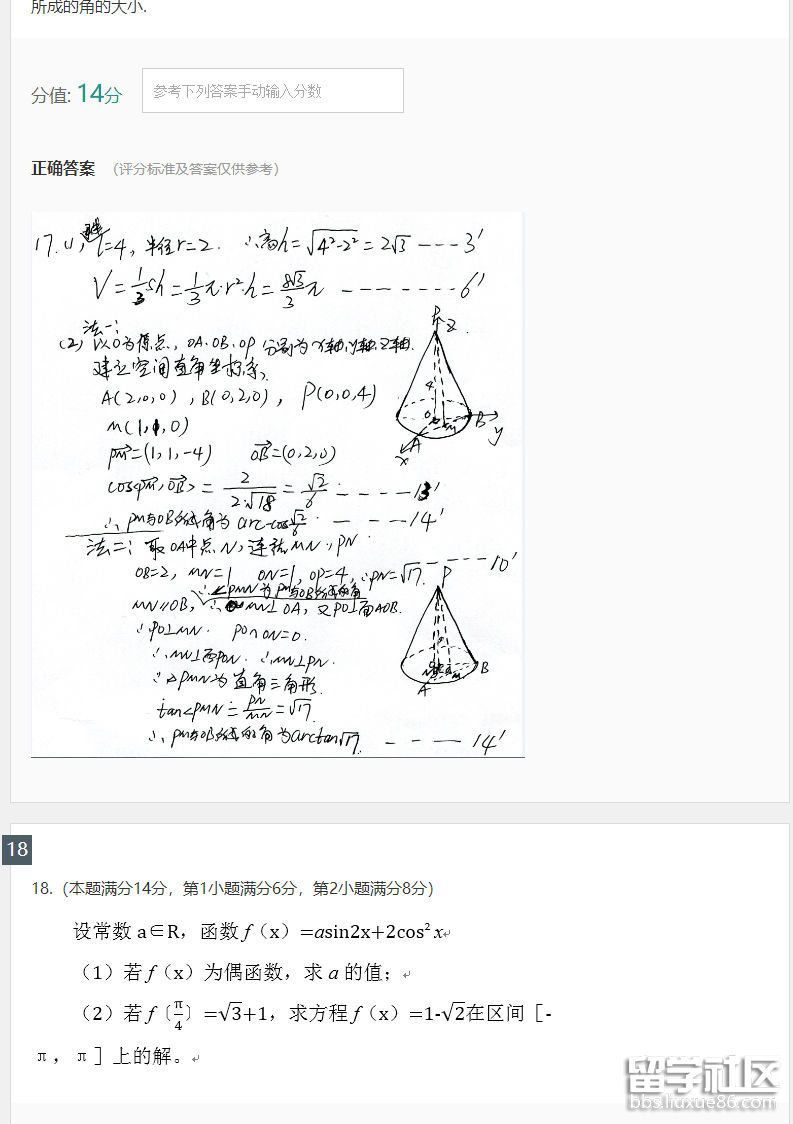 所成的角的大小.
分值: 14分 参考下列答案手动输入分数
正确答案 （评分标准及答案仅供参考）
17. (1) l=4, 半径r=2. ∴高h=√(4²-2²)=2√3 ---3'
V=1/3sh=1/3π·r²·h=8√3/3π --------6'
法一:
(2) 以O为原点, OA、OB、OP 分别为x轴,y轴,z轴.
建立空间直角坐标系,
A(2,0,0), B(0,2,0), P(0,0,4)
M(1,1,0)
PM=(1,1,-4) OB=(0,2,0)
cos<PM,OB>=2/(2·√18)=√2/6 ----13'
∴PM与OB所成角为arc-cos√2/6 ----14'
法二: 取OA中点N, 连结MN, PN
OB=2, MN=1 ON=1, OP=4, ∴PN=√17. ----10'
∴∠PMN为PM与OB所成的角
MN∥OB, ∴MN⊥OA, 又PO⊥面AOB.
∴PO⊥MN. PO∩ON=O.
∴MN⊥面PON. ∴MN⊥PN.
∴△PMN为直角三角形.
tan∠PMN=PN/MN=√17.
∴PM与OB所成的角为arctan√17. ----14'
P
z
4
O
M
B
y
A
x
P
N
O
M
B
A
18
18.（本题满分14分，第1小题满分6分，第2小题满分8分）
设常数 a∈R，函数 f（x）=asin2x+2cos²x
（1）若 f（x）为偶函数，求 a 的值；
（2）若 f〔π/4〕=√3+1，求方程 f（x）=1-√2在区间［-
π，π］上的解。
留学社区
bbs.liuxue86.com